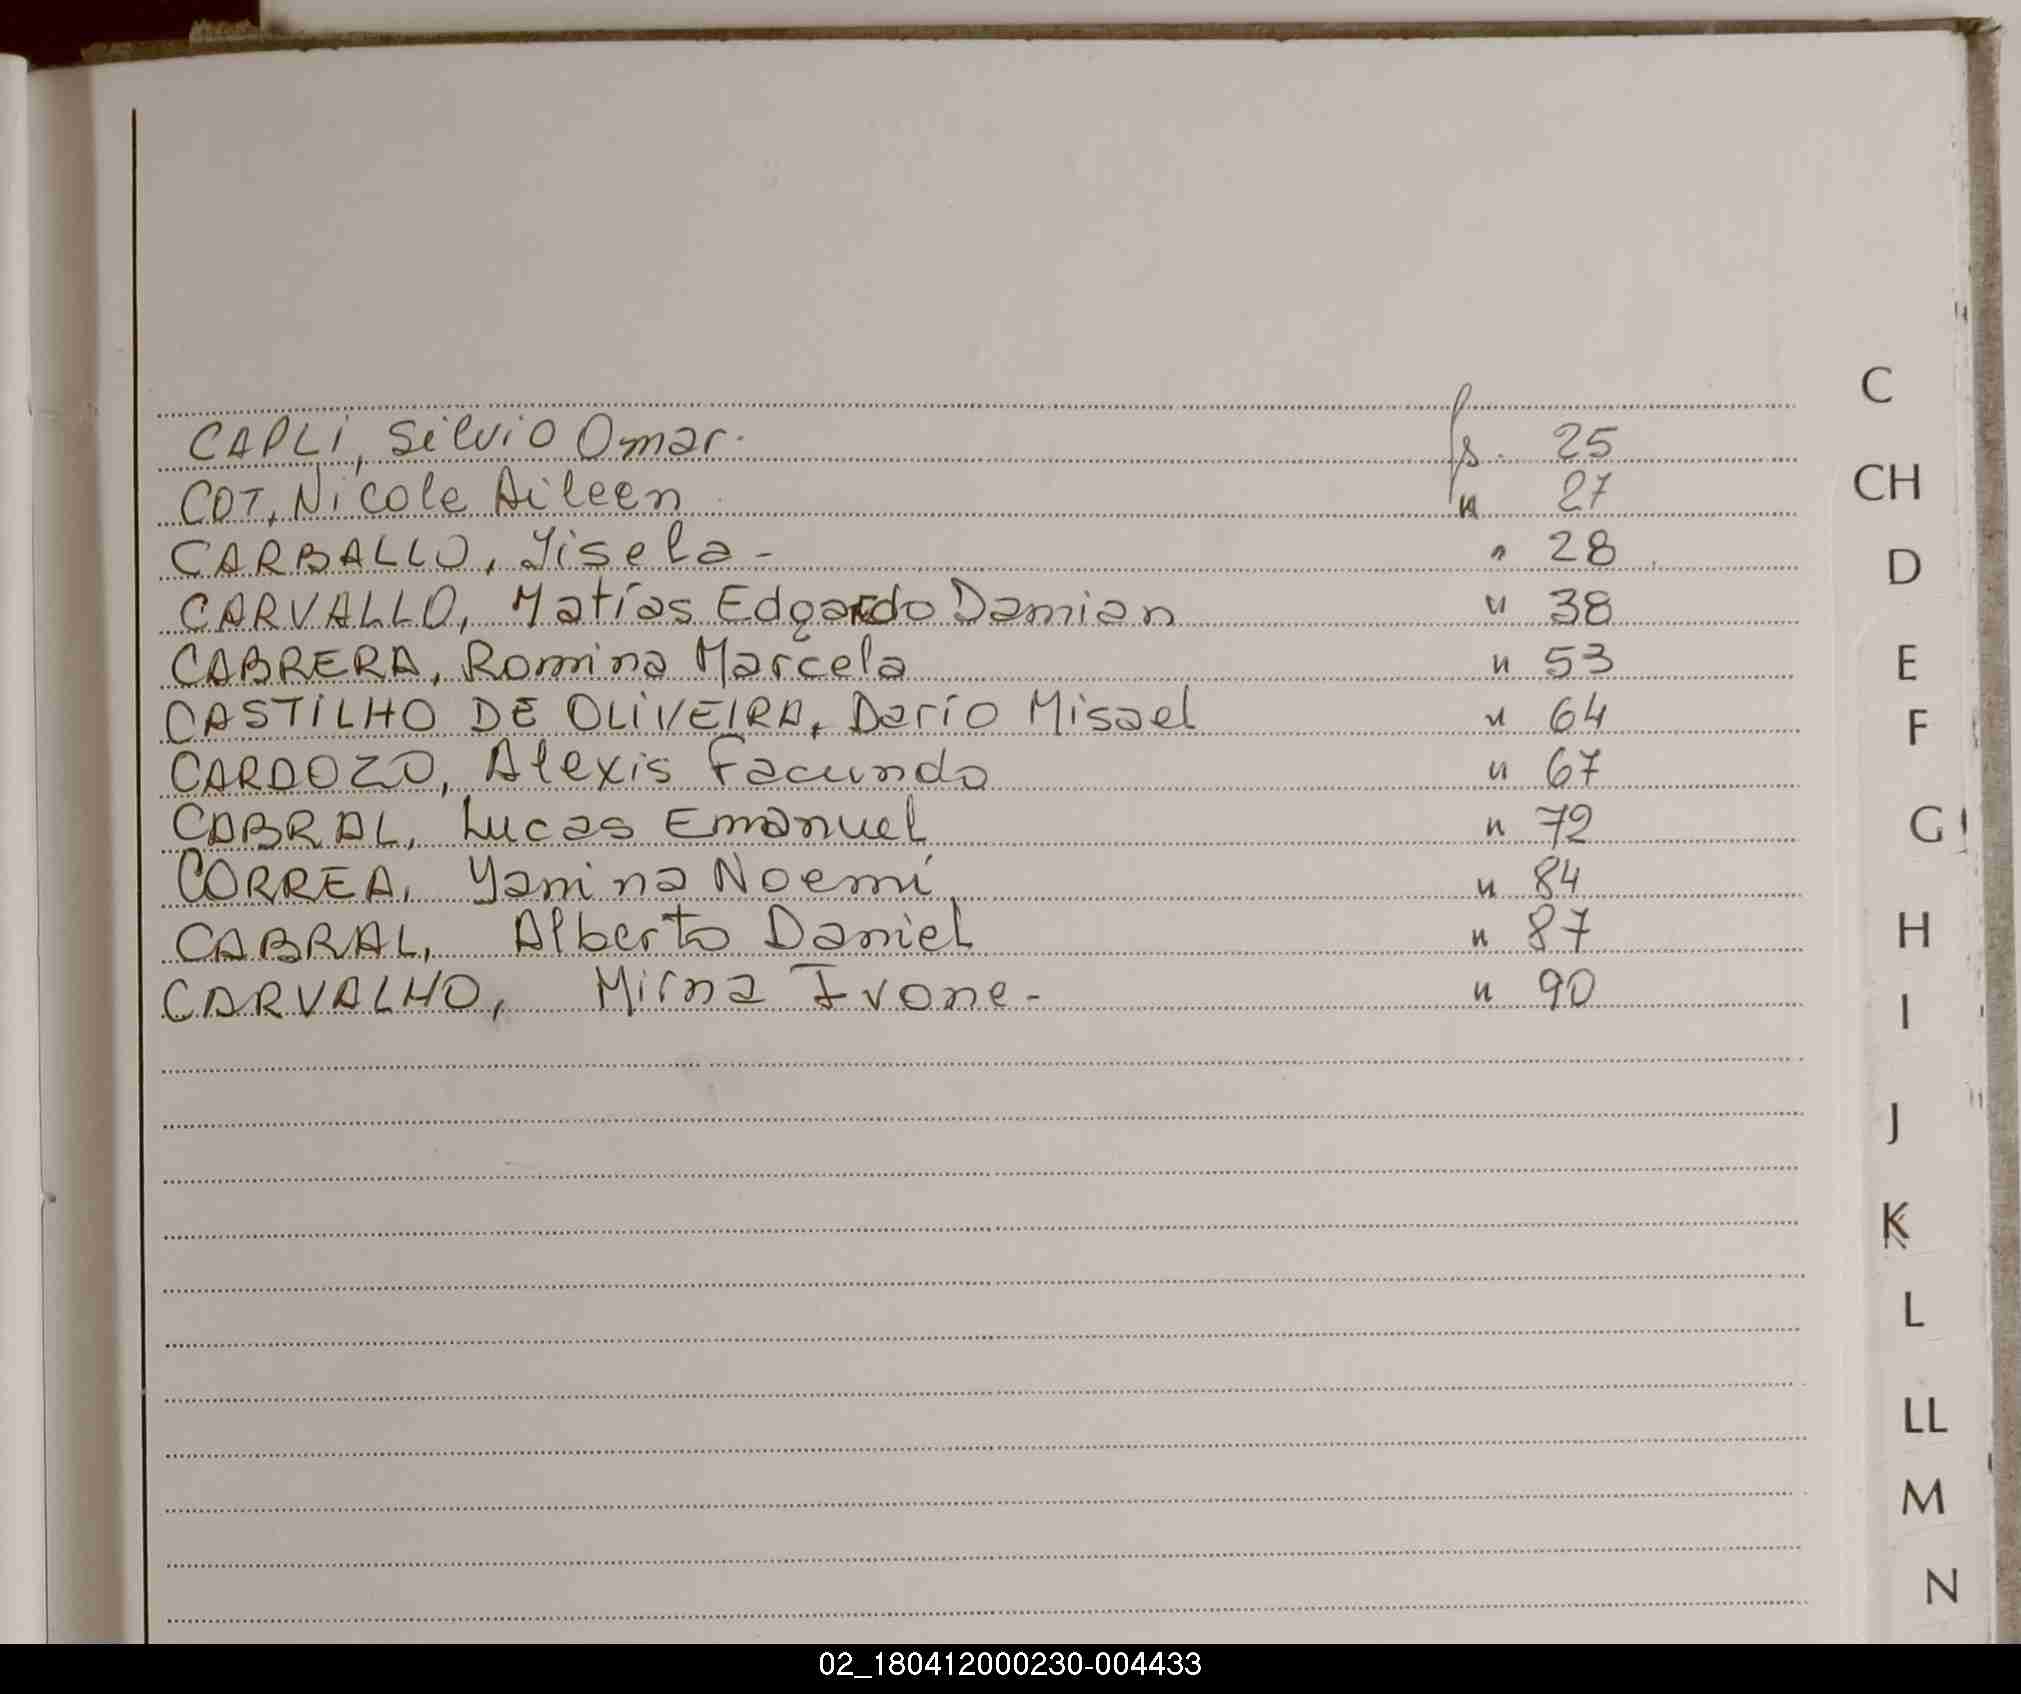 CAPLI, Silvio Omar. fs. 25
COT, Nicole Aileen " 27
CARBALLO, Yisela - " 28
CARVALLO, Matías Edgardo Damian " 38
CABRERA, Romina Marcela " 53
CASTILHO DE OLIVEIRA, Darío Misael " 64
CARDOZO, Alexis Facundo " 67
CABRAL, Lucas Emanuel " 72
CORREA, Yanina Noemí " 84
CABRAL, Alberto Daniel " 87
CARVALHO, Mirna Ivone - " 90
C
CH
D
E
F
G
H
I
J
K
L
LL
M
N
02_180412000230-004433